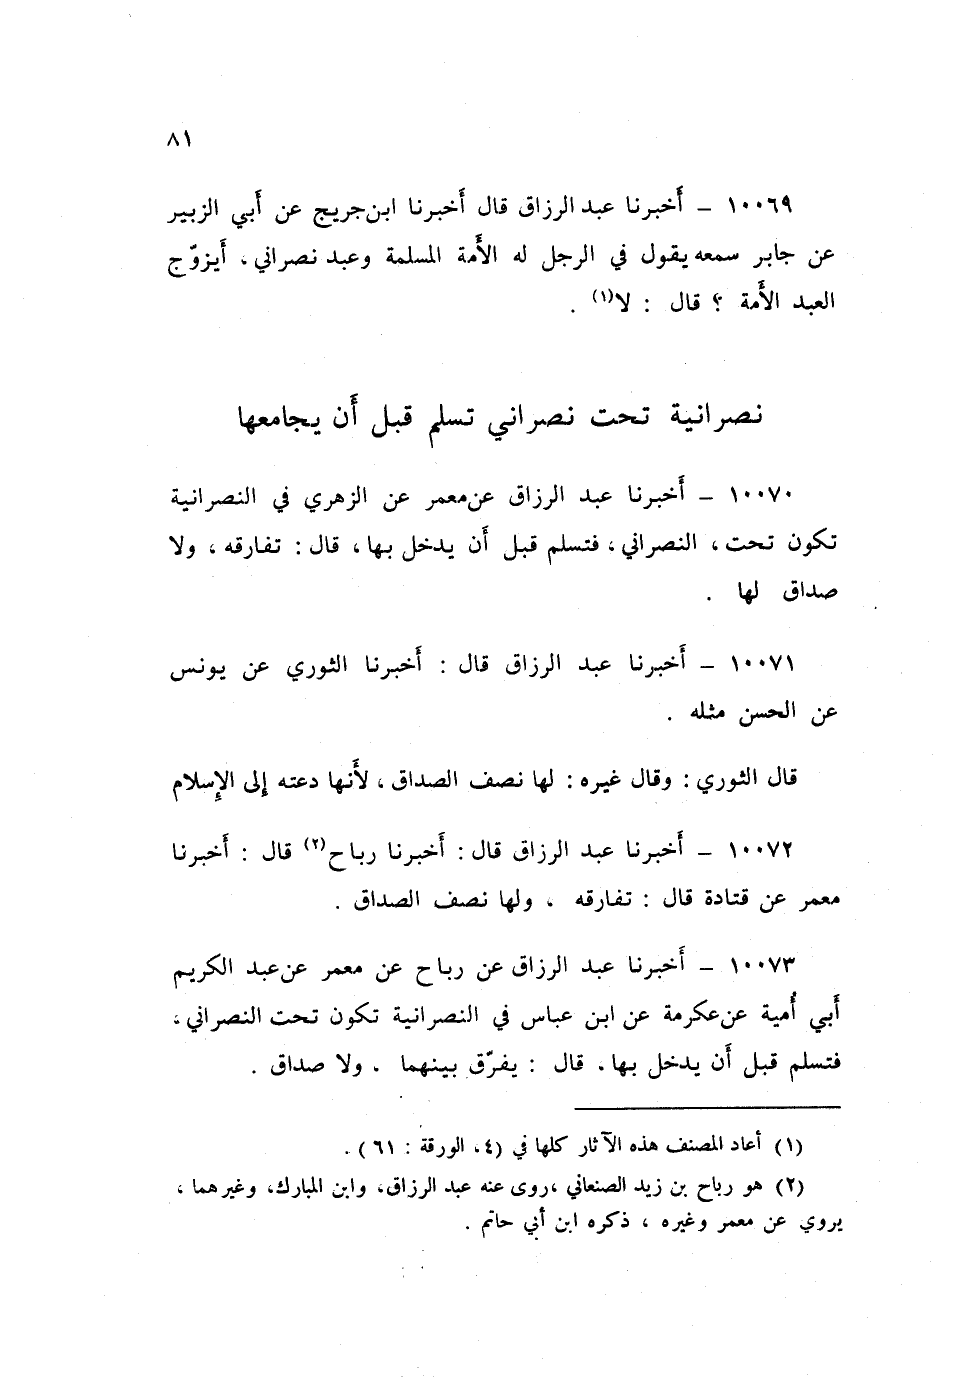 ٨١
١٠٠٦٩ – أَخبرنا عبد الرزاق قال أَخبرنا ابن جريج عن أَبي الزبير
عن جابر سمعه يقول في الرجل له الأَمة المسلمة وعبد نصراني، أَيزوّج
العبد الأَمة ؟ قال : لا(١) .
نصرانية تحت نصراني تسلم قبل أَن يجامعها
١٠٠٧٠ – أَخبرنا عبد الرزاق عن معمر عن الزهري في النصرانية
تكون تحت ، النصراني ، فتسلم قبل أَن يدخل بها ، قال : تفارقه ، ولا
صداق لها .
١٠٠٧١ – أَخبرنا عبد الرزاق قال : أَخبرنا الثوري عن يونس
عن الحسن مثله .
قال الثوري : وقال غيره : لها نصف الصداق ، لأَنها دعته إِلى الإِسلام
١٠٠٧٢ – أَخبرنا عبد الرزاق قال : أَخبرنا رباح(٢) قال : أَخبرنا
معمر عن قتادة قال : تفارقه ، ولها نصف الصداق .
١٠٠٧٣ – أَخبرنا عبد الرزاق عن رباح عن معمر عن عبد الكريم
أَبي أُمية عن عكرمة عن ابن عباس في النصرانية تكون تحت النصراني ،
فتسلم قبل أَن يدخل بها ، قال : يفرّق بينهما ، ولا صداق .
(١) أعاد المصنف هذه الآثار كلها في (٤، الورقة : ٦١) .
(٢) هو رباح بن زيد الصنعاني ، روى عنه عبد الرزاق، وابن المبارك، وغيرهما ،
يروي عن معمر وغيره ، ذكره ابن أبي حاتم .